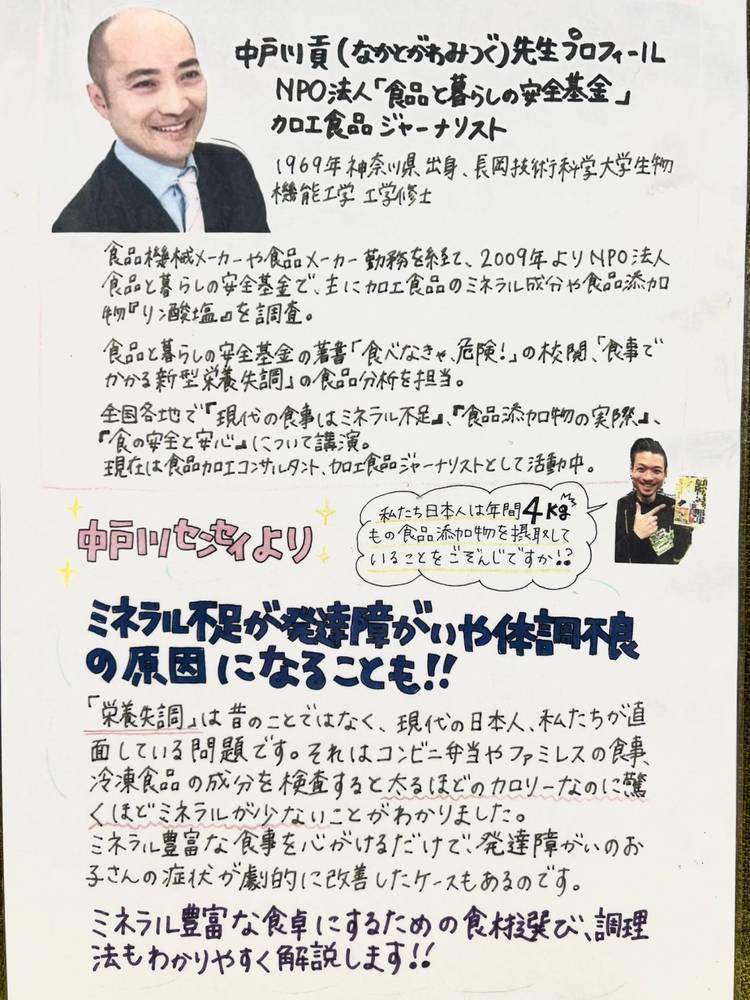 中戸川貢(なかとがわみつぐ)先生プロフィール
NPO法人「食品と暮らしの安全基金」
加工食品ジャーナリスト
1969年神奈川県出身、長岡技術科学大学生物
機能工学 工学修士
食品機械メーカーや食品メーカー勤務を経て、2009年よりNPO法人
食品と暮らしの安全基金で、主に加工食品のミネラル成分や食品添加
物『リン酸塩』を調査。
食品と暮らしの安全基金の著書「食べなきゃ、危険!」の校閲、「食事で
かかる新型栄養失調」の食品分析を担当。
全国各地で『現代の食事はミネラル不足』、『食品添加物の実際』、
『食の安全と安心』について講演。
現在は食品加工コンサルタント、加工食品ジャーナリストとして活動中。
中戸川センセイより
私たち日本人は年間4kg
もの食品添加物を摂取して
いることをごぞんじですか!?
ミネラル不足が発達障がいや体調不良
の原因になることも!!
「栄養失調」は昔のことではなく、現代の日本人、私たちが直
面している問題です。それはコンビニ弁当やファミレスの食事、
冷凍食品の成分を検査すると太るほどのカロリーなのに驚
くほどミネラルが少ないことがわかりました。
ミネラル豊富な食事を心がけるだけで、発達障がいのお
子さんの症状が劇的に改善したケースもあるのです。
ミネラル豊富な食卓にするための食材選び、調理
法もわかりやすく解説します!!